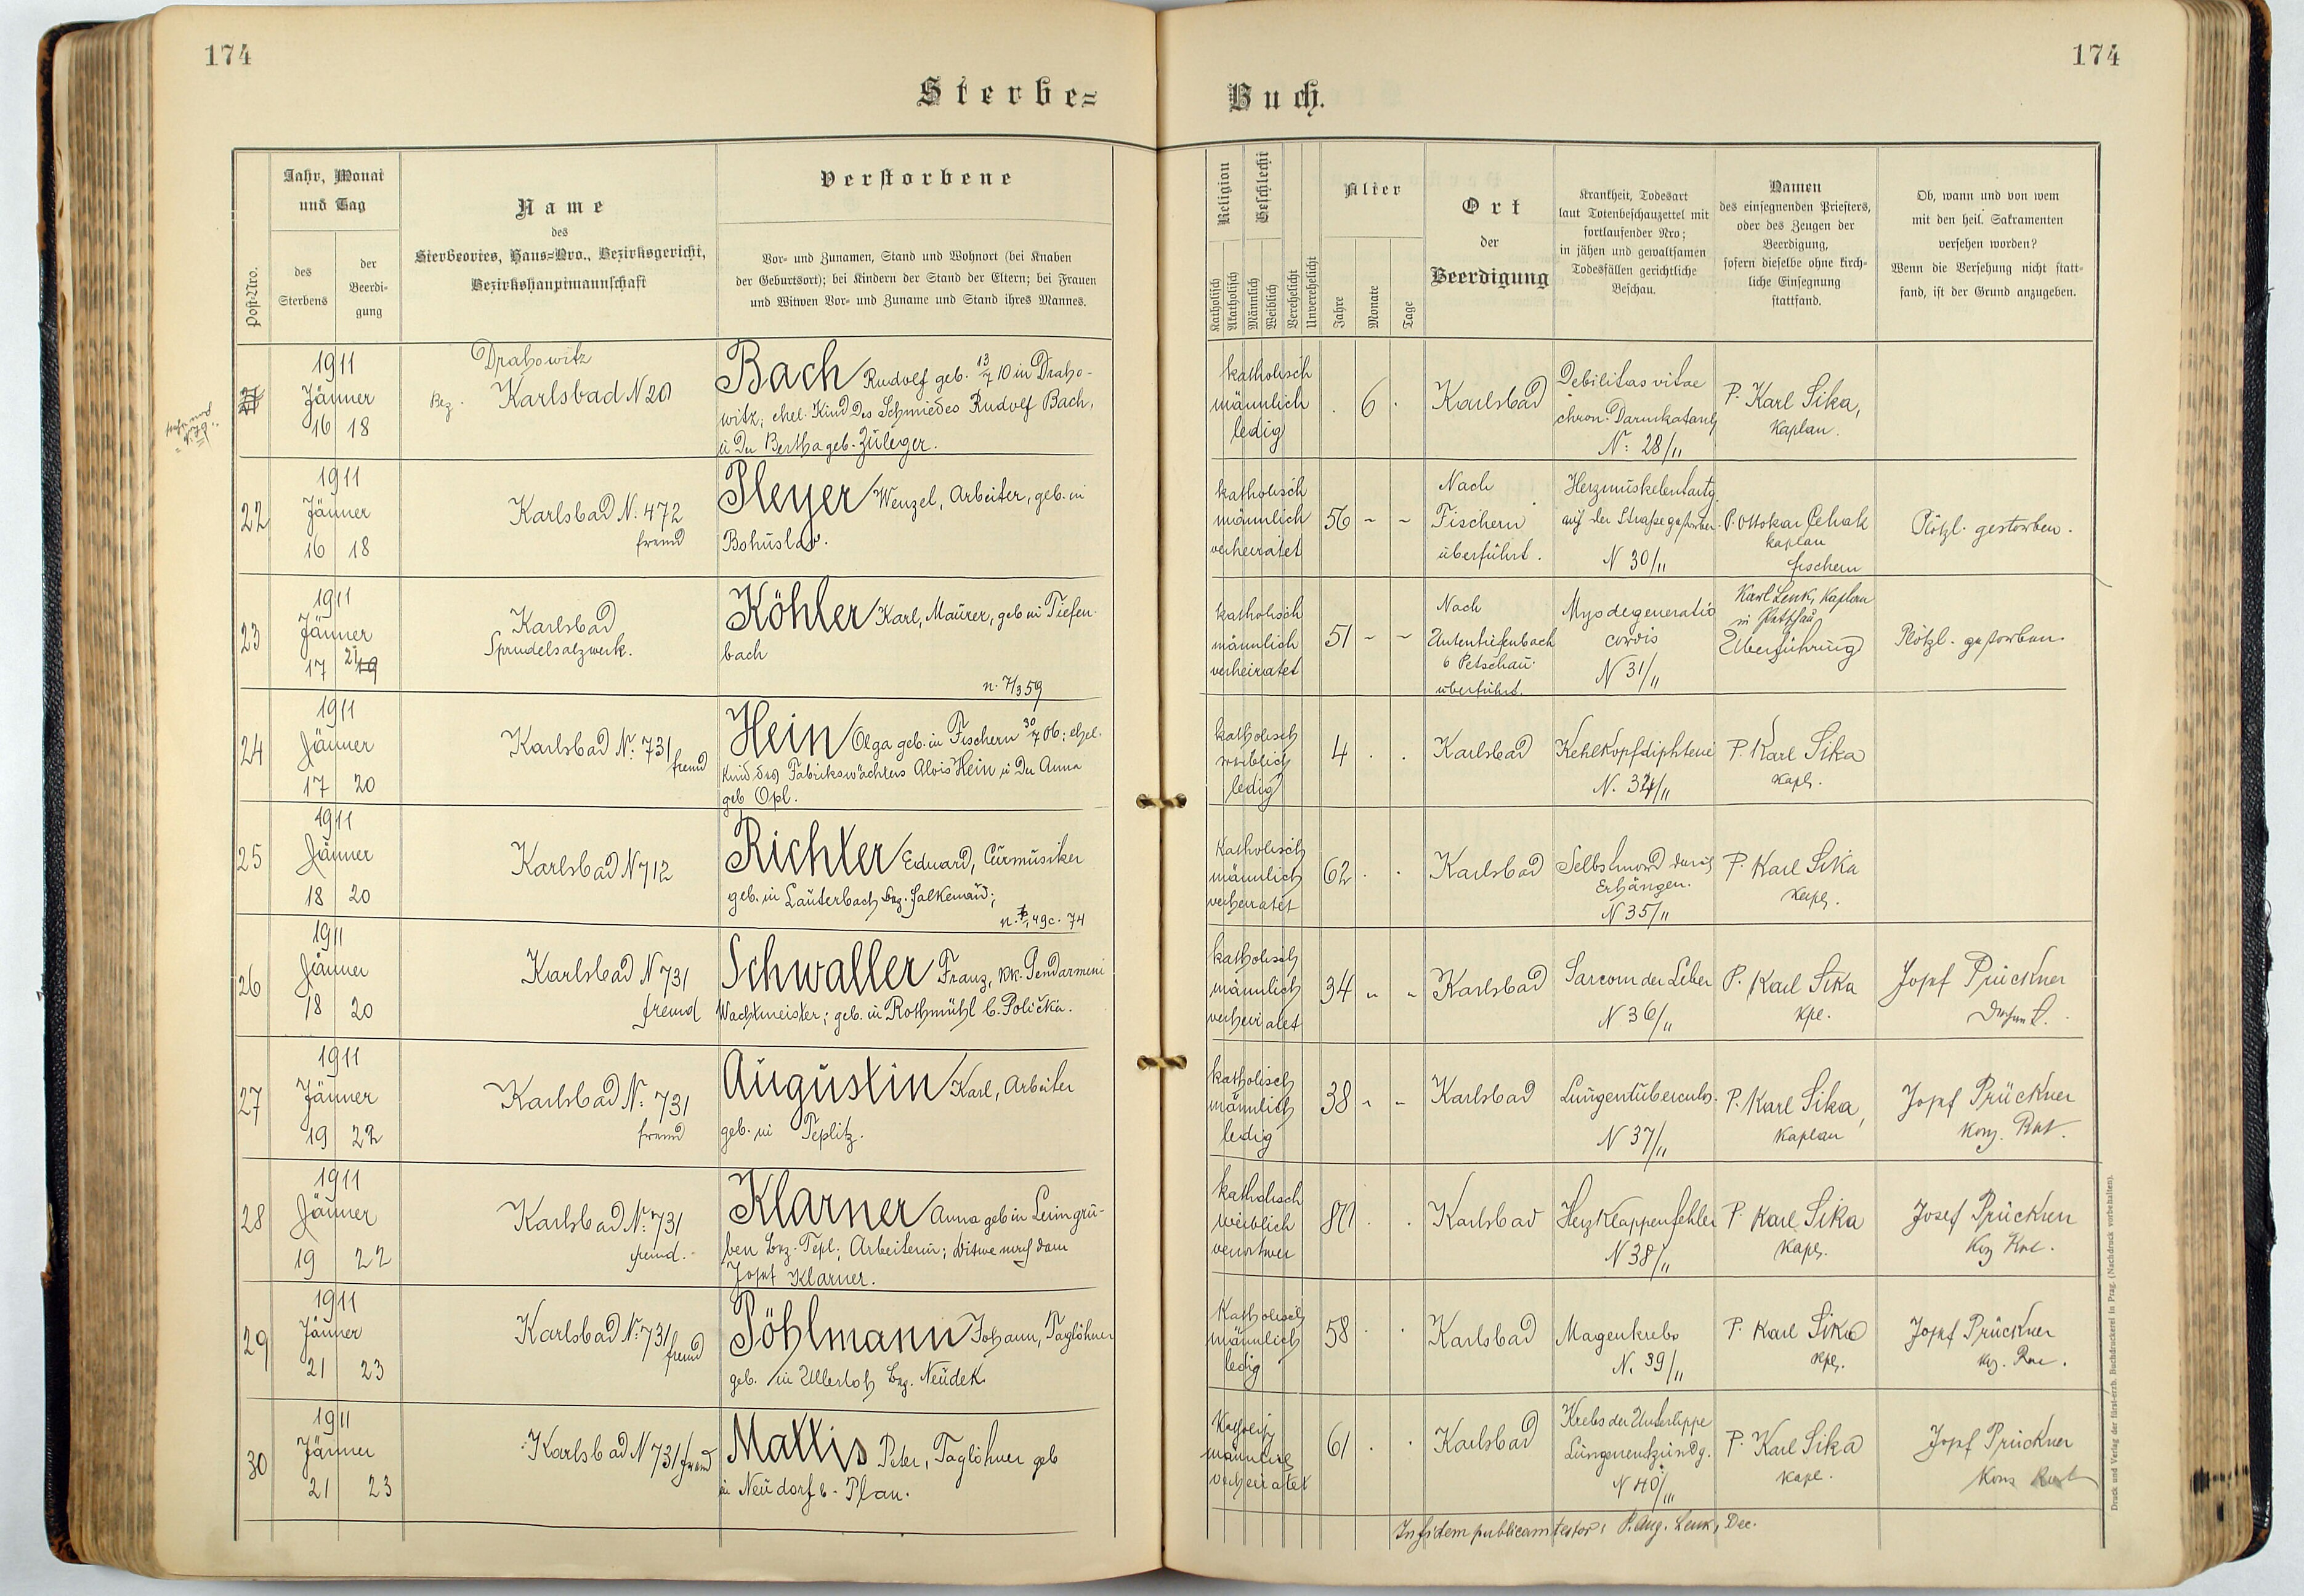 174
174
Sterbe=
Buch.
Post-Nro.
Jahr, Monat
und Tag
des
Sterbens
der
Beerdi-
gung
Name
des
Sterbeortes, Haus=Nro., Bezirksgericht,
Bezirkshauptmannschaft
Verstorbene
Vor- und Zunamen, Stand und Wohnort (bei Knaben
der Geburtsort); bei Kindern der Stand der Eltern; bei Frauen
und Witwen Vor- und Zuname und Stand ihres Mannes.
Religion
Geschlecht
Katholisch
Akatholisch
Männlich
Weiblich
Verehelicht
Unverehelicht
Alter
Jahre
Monate
Tage
Ort
der
Beerdigung
Krankheit, Todesart
laut Totenbeschauzettel mit
fortlaufender Nro;
in jähen und gewaltsamen
Todesfällen gerichtliche
Beschau.
Namen
des einsegnenden Priesters,
oder des Zeugen der
Beerdigung,
sofern dieselbe ohne kirch-
liche Einsegnung
stattfand.
Ob, wann und von wem
mit den heil. Sakramenten
versehen worden?
Wenn die Versehung nicht statt-
fand, ist der Grund anzugeben.
1911
Jänner
16 18
Drahowitz
Bez. Karlsbad N 20
Bach Rudolf geb. 13/7 10 in Draho-
witz; ehel. Kind des Schmiedes Rudolf Bach,
u der Bertha geb. Züleger.
katholisch
männlich
ledig
6
Karlsbad
Debilitas vitae
chron. Darmkatarrh
N: 28/11
P. Karl Sika,
Kaplan.
22
1911
Jänner
16 18
Karlsbad N. 472
fremd
Pleyer Wenzel, Arbeiter, geb. in
Bohuslav.
katholisch
männlich
verheiratet
56 - -
Nach
Fischern
überführt.
Herzmuskelentartg
auf der Straße gestorben.
N 30/11
P. Ottokar Čehak
Kaplan
Fischern
Plötzl. gestorben.
23
1911
Jänner
17 21 19
Karlsbad
Sprudelsalzwerk.
Köhler Karl, Maurer, geb in Tiefen-
bach
n. 7/359
katholisch
männlich
verheiratet
51 - -
Nach
Untertiefenbach
b Petschau
überführt.
Myodegeneratio
cordis
N 31/11
Karl Lenk, Kaplan
in Petschau
Überführung
Plötzl. gestorben.
24
1911
Jänner
17 20
Karlsbad N: 731
fremd
Hein Olga geb. in Fischern 30/7 06; ehel.
Kind des Fabrikswächters Alois Hein u der Anna
geb Opl.
katholisch
weiblich
ledig
4
Karlsbad
Kehlkopfdiphterie
N. 34/11
P. Karl Sika
Kapl.
25
1911
Jänner
18 20
Karlsbad N 712
Richter Eduard, Curmusiker
geb. in Lauterbach Bez. Falkenau;
katholisch
männlich
verheiratet
62
Karlsbad
Selbstmord durch
Erhängen.
N 35/11
P. Karl Sika
Kapl.
26
1911
Jänner
18 20
Karlsbad N 731
fremd
Schwaller Franz, k.k. Gendarmerie
Wachtmeister; geb. in Rothmühl b. Polička.
katholisch
männlich
verheiratet
34 - -
Karlsbad
Sarcom der Leber
N 36/11
P. Karl Sika
Kpl.
Josef Prückner
27
1911
Jänner
19 22
Karlsbad N: 731
fremd
Augustin Karl, Arbeiter
geb. in Teplitz.
katholisch
männlich
ledig
38 - -
Karlsbad
Lungentuberculos.
N 37/11
P. Karl Sika,
Kaplan
Josef Prückner
Kons. Rat.
28
1911
Jänner
19 22
Karlsbad N: 731
fremd.
Klarner Anna geb in Leimgru-
ben Bez. Tepl; Arbeiterin; Witwe nach dem
Josef Klarner.
katholisch
weiblich
verwitwet
Karlsbad
Herzklappenfehler
N 38/11
P. Karl Sika
Kapl.
Josef Prückner
29
1911
Jänner
21 23
Karlsbad N: 731
fremd
Pöhlmann Johann, Taglöhner
geb. in Ullersloh Bez. Neudek
Katholisch
männlich
ledig
58
Karlsbad
Magenkrebs
N. 39/11
P. Karl Sika
Kpl.
Josef Prückner
30
1911
Jänner
21 23
Karlsbad N 731 fremd
Mattis Peter, Taglöhner geb
in Neudorf b. Plan.
Katholisch
männlich
verheiratet
61
Karlsbad
Krebs der Unterlippe
Lungenentzündg.
N 40/11
P. Karl Sika
Kapl.
Josef Prückner
Kons Rat
In fidem publicam testor: P. Aug. Lenk, Dec.
Druck und Verlag der fürst-erzb. Buchdruckerei in Prag. (Nachdruck vorbehalten).